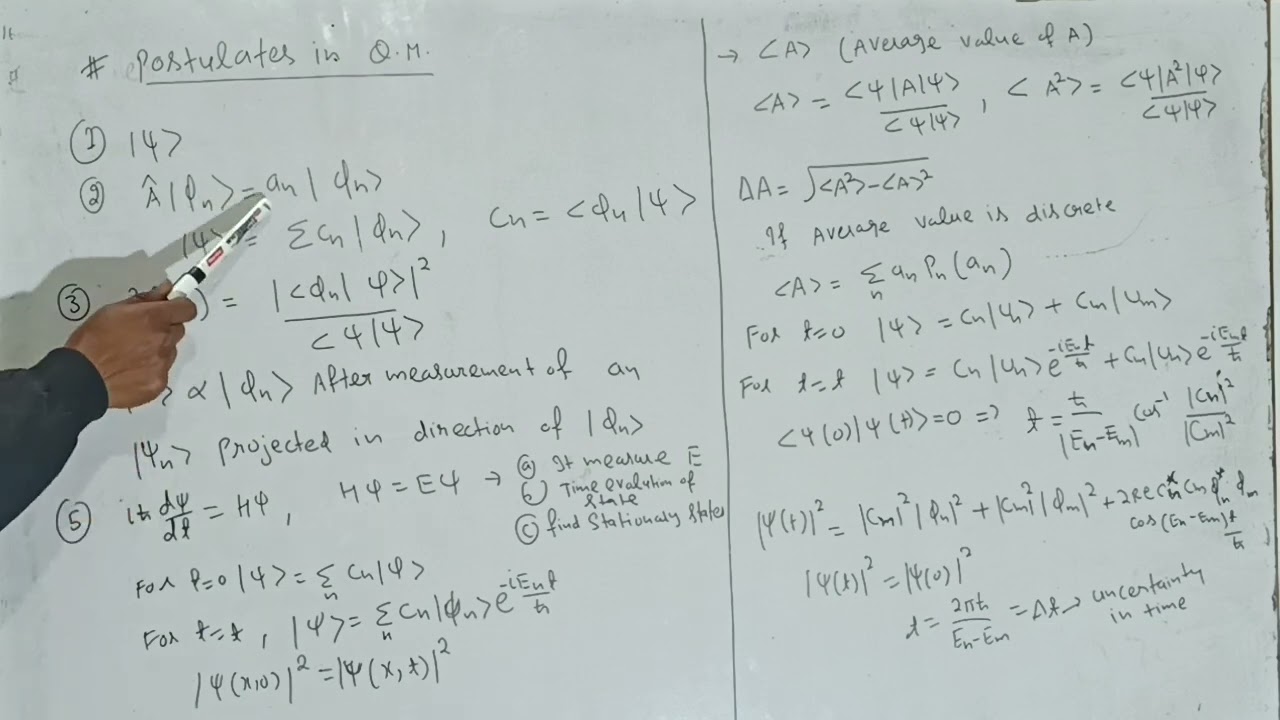 # Postulates in Q.M.
① |ψ>
② Â|ϕn> = an|ϕn>
|ψ> = Σcn|ϕn>, Cn = <ϕn|ψ>
③ ) = |<ϕn|ψ>|² / <ψ|ψ>
> α |ϕn> After measurement of an
|Ψn> projected in direction of |ϕn>
⑤ iħ dψ/dt = Hψ, Hψ = Eψ → ⓐ It measure E
ⓑ Time evalution of state
ⓒ find Stationary States
For t=0 |ψ> = Σn Cn|φ>
For t=t, |ψ> = Σn Cn|ϕn> e^-iEnt/ħ
|ψ(x,0)|² = |ψ(x,t)|²
→ <A> (Average value of A)
<A> = <ψ|A|ψ> / <ψ|ψ>, <A²> = <ψ|A²|ψ> / <ψ|ψ>
ΔA = √<A²>-<A>²
If Average value is discrete
<A> = Σn an Pn(an)
For t=0 |ψ> = Cn|Un> + Cm|Um>
For t=t |ψ> = Cn|Un> e^-iEnt/ħ + Cm|Um> e^-iEmt/ħ
<ψ(0)|ψ(t)>=0 => t = ħ/|En-Em| cos⁻¹ |Cn|²/|Cm|²
|ψ(t)|² = |Cm|²|ϕn|² + |Cm|²|ϕm|² + 2Re Cn* Cm ϕn* ϕm
cos(En-Em)t/ħ
|ψ(t)|² = |ψ(0)|²
t = 2πħ/En-Em = Δt → uncertainty in time